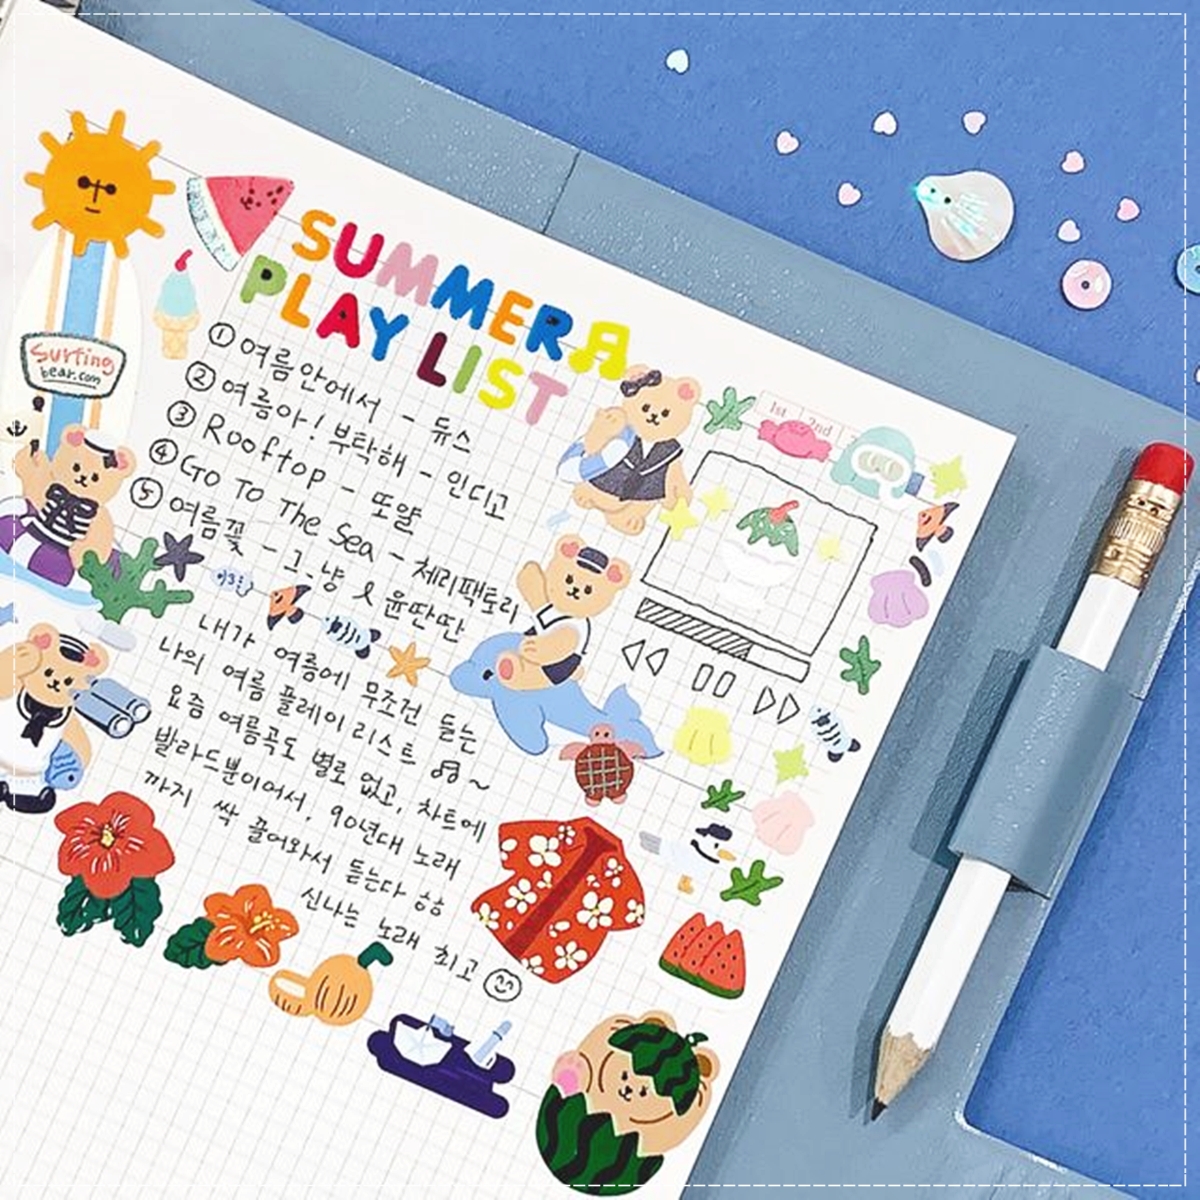 SUMMER
PLAY LIST
① 여름안에서 - 듀스
② 여름아! 부탁해 - 인디고
③ Rooftop - 또얌
④ Go To The Sea - 체리팩토리
⑤ 여름꽃 - 그_냥 & 윤딴딴
내가 여름에 무조건 듣는
나의 여름 플레이리스트 ♫ ~
요즘 여름곡도 별로 없고, 차트에
발라드뿐이어서, 90년대 노래
까지 싹 끌어와서 듣는다 ㅎㅎ
신나는 노래 최고
Surfing
bear.com
1st 2nd